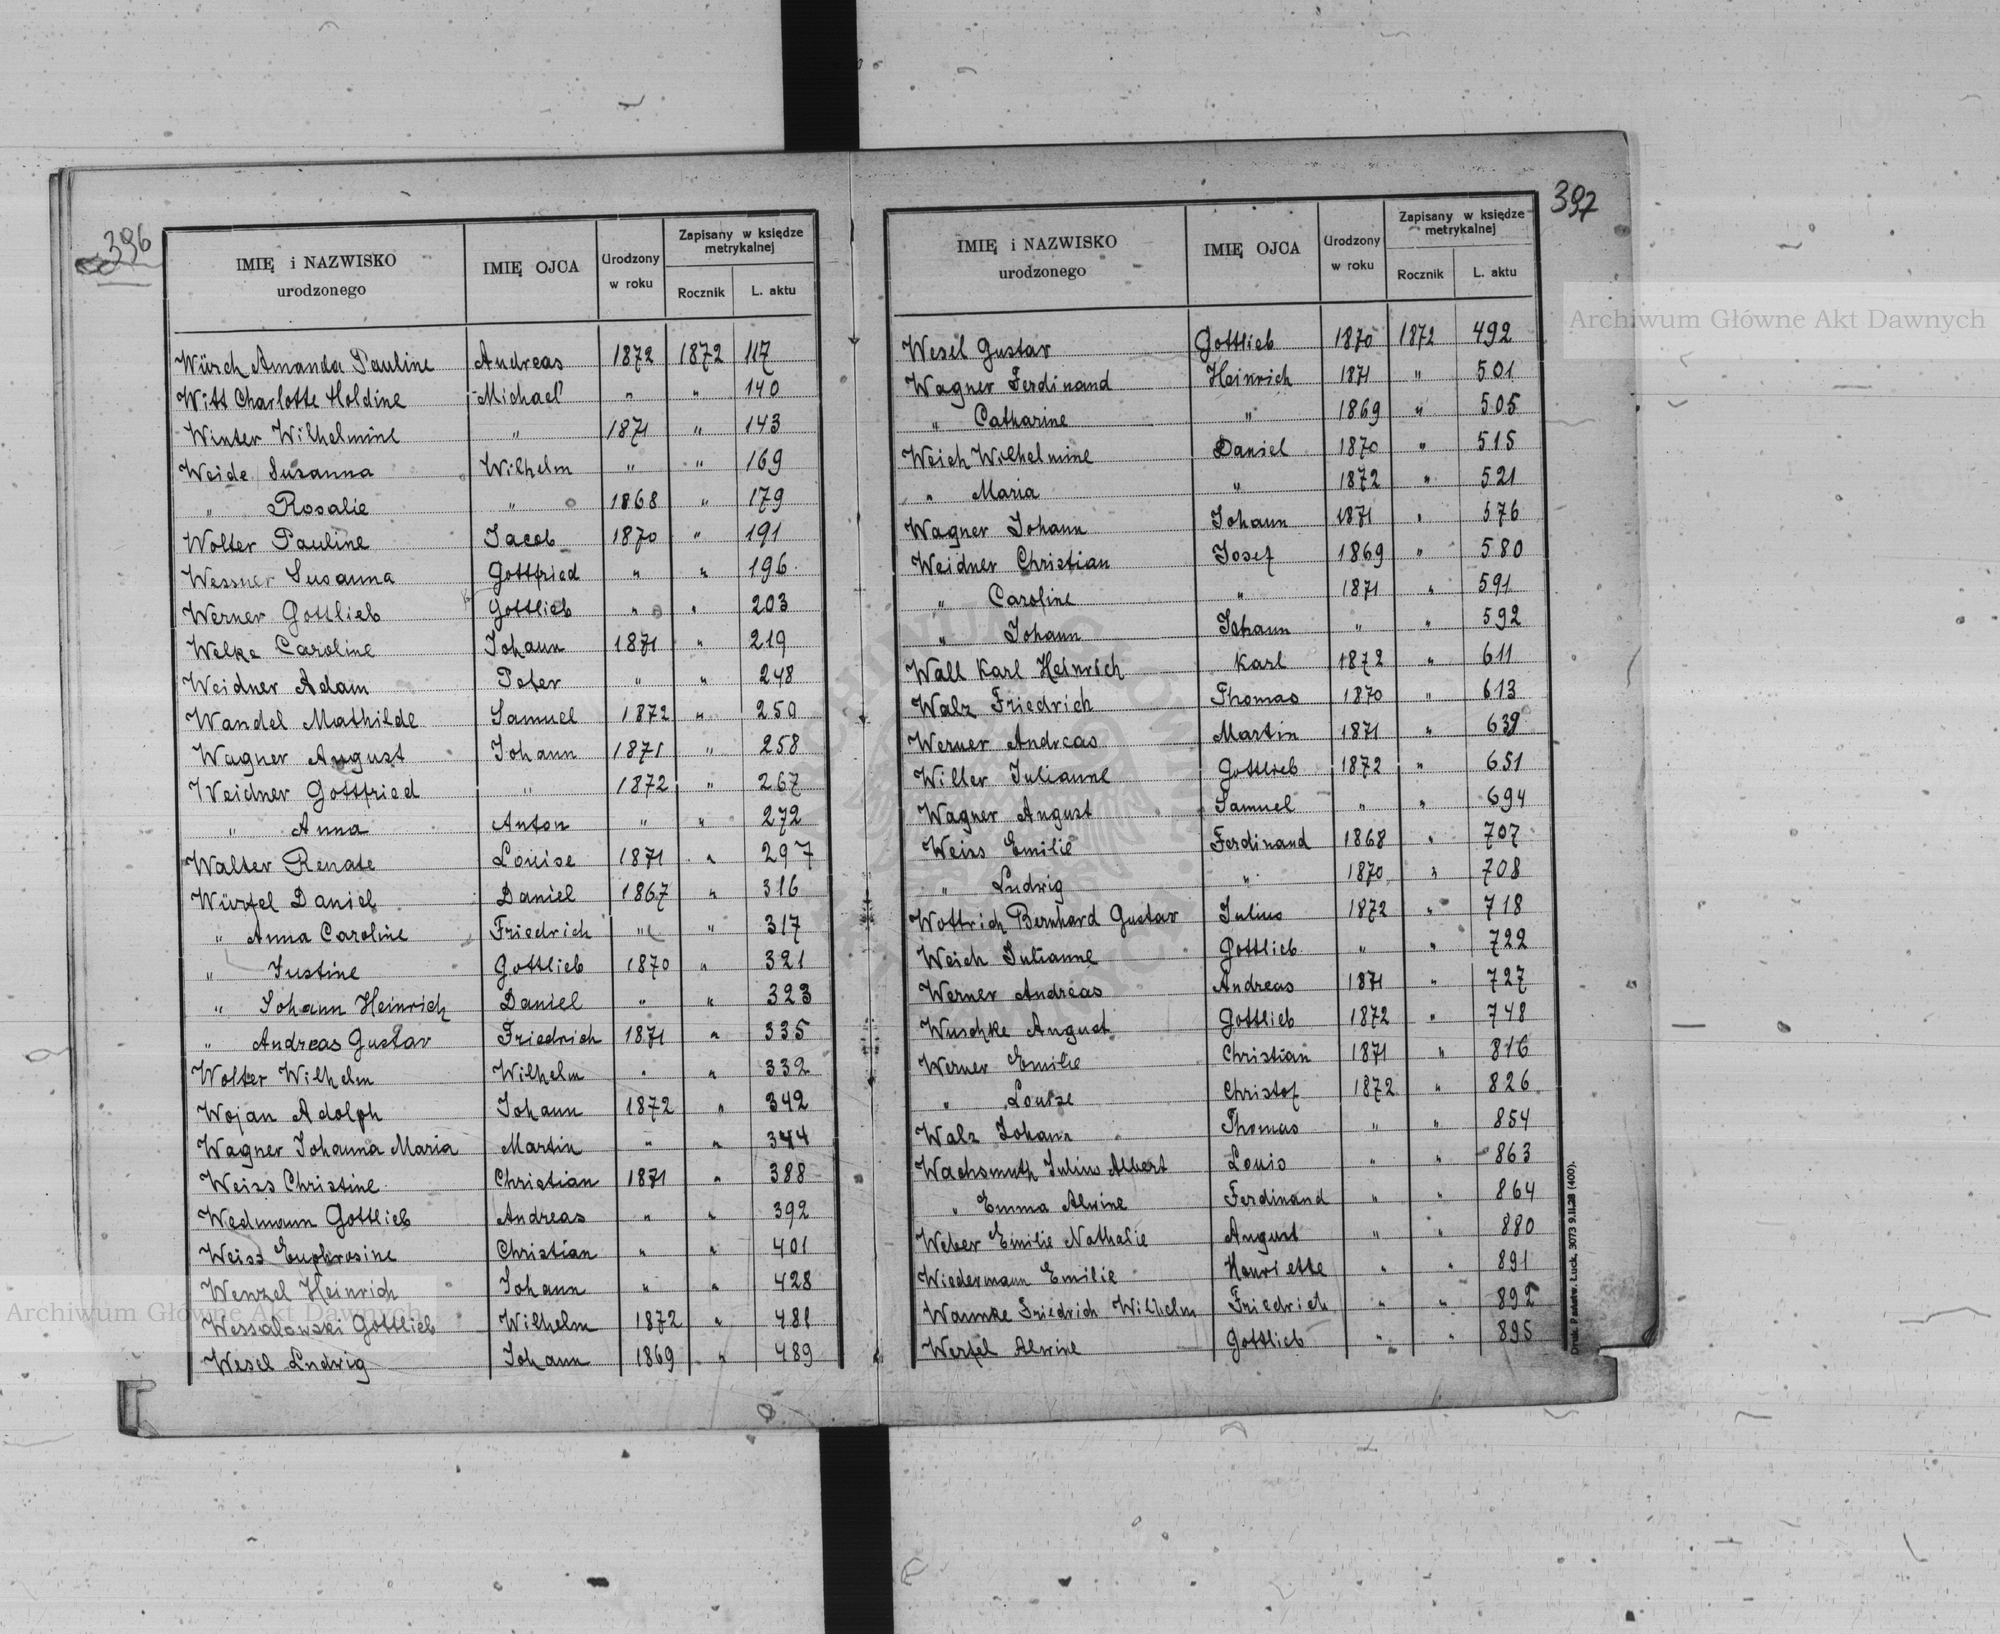 396
IMIĘ i NAZWISKO urodzonego IMIĘ OJCA Urodzony w roku Zapisany w księdze metrykalnej Rocznik L. aktu
Würch Amanda Pauline Andreas 1872 1872 117
Witt Charlotte Holdine Michael " " 140
Winter Wilhelmine " 1871 " 143
Weide Susanna Wilhelm " " 169
" Rosalie " 1868 " 179
Wolter Pauline Jacob 1870 " 191
Wessner Susanna Gottfried " " 196
Werner Gottlieb Gottlieb " " 203
Welke Caroline Johann 1871 " 219
Weidner Adam Peter " " 248
Wandel Mathilde Samuel 1872 " 250
Wagner August Johann 1871 " 258
Weidner Gottfried " 1872 " 267
" Anna Anton " " 272
Walter Renate Louise 1871 " 297
Würfel Daniel Daniel 1867 " 316
" Anna Caroline Friedrich " " 317
" Justine Gottlieb 1870 " 321
" Johann Heinrich Daniel " " 323
" Andreas Gustav Friedrich 1871 " 335
Wolter Wilhelm Wilhelm " " 332
Wojan Adolph Johann 1872 " 342
Wagner Johanna Maria Martin " " 344
Weiss Christine Christian 1871 " 388
Wedmann Gottlieb Andreas " " 392
Weiss Euphrosine Christian " " 401
Wenzel Heinrich Johann " " 428
Wessalowski Gottlieb Wilhelm 1872 " 481
Wesel Ludwig Johann 1869 " 489
397
IMIĘ i NAZWISKO urodzonego IMIĘ OJCA Urodzony w roku Zapisany w księdze metrykalnej Rocznik L. aktu
Wesel Gustav Gottlieb 1870 1872 492
Wagner Ferdinand Heinrich 1871 " 501
" Catharine " 1869 " 505
Weich Wilhelmine Daniel 1870 " 515
" Maria " 1872 " 521
Wagner Johann Johann 1871 " 576
Weidner Christian Josef 1869 " 580
" Caroline " 1871 " 591
" Johann Johann " " 592
Wall Karl Heinrich Karl 1872 " 611
Walz Friedrich Thomas 1870 " 613
Werner Andreas Martin 1871 " 639
Willer Julianne Gottlieb 1872 " 651
Wagner August Samuel " " 694
Weiss Emilie Ferdinand 1868 " 707
" Ludwig " 1870 " 708
Wottrich Bernhard Gustav Julius 1872 " 718
Weich Julianne Gottlieb " " 722
Werner Andreas Andreas 1871 " 727
Wuschke August Gottlieb 1872 " 748
Werner Emilie Christian 1871 " 816
" Louise Christof 1872 " 826
Walz Johann Thomas " " 854
Wachsmuth Julius Albert Louis " " 863
" Emma Alwine Ferdinand " " 864
Weber Emilie Nathalie August " " 880
Wiedermann Emilie Henriette " " 891
Warnke Friedrich Wilhelm Friedrich " " 892
Werfel Alwine Gottlieb " " 895
Druk. Państw. Łuck, 3073 9.II.28 (400).
Archiwum Główne Akt Dawnych
Archiwum Główne Akt Dawnych